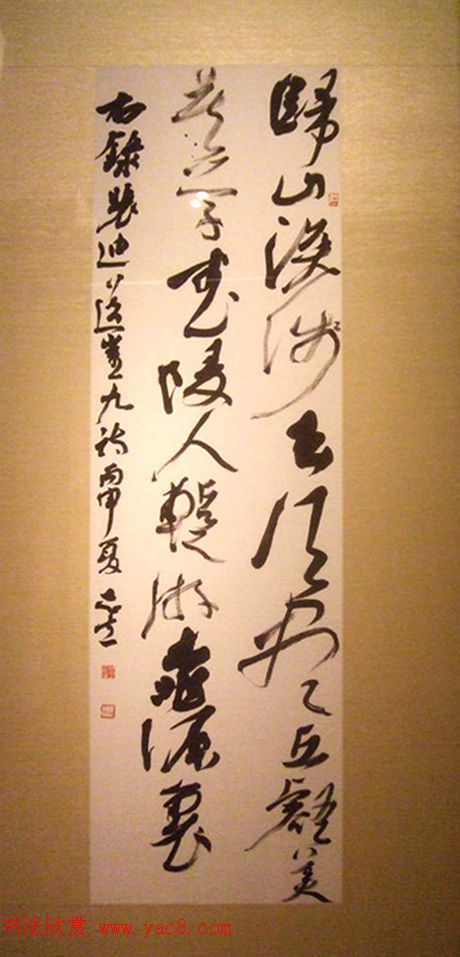 歸山深淺去須盡丘壑美
莫學武陵人暫游桃源裏
右錄裴迪送崔九詩丙申夏
书法欣赏 www.yac8.com